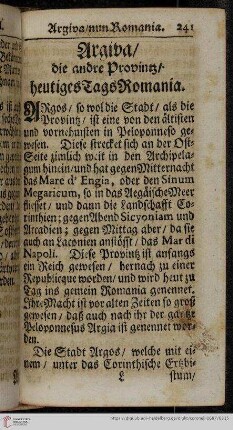 Argiva/nun Romania. 241
Argiva/
die andre Provintz/
heutiges Tags Romania.
ARgos/ so wol die Stadt/ als die
Provintz/ ist eine von den ältisten
und vornehmsten in Peloponneso ge-
wesen. Diese strecket sich an der Ost-
Seite zimlich weit in den Archipela-
gum hinein/und hat gegen Mitternacht
das Mare d' Engia, oder den Sinum
Megaricum, so in das Egäische Meer
fliesset/ und dann die Landschafft Co-
rinthien; gegen Abend Sicyoniam und
Arcadien; gegen Mittag aber/ da sie
auch an Laconien anstösst/ das Mar di
Napoli. Diese Provintz ist anfangs
ein Reich gewesen/ hernach zu einer
Republicque worden/ und wird heut zu
Tag ins gemein Romania genennet.
Ihre Macht ist vor alten Zeiten so groß
gewesen/ daß auch nach ihr der gantze
Peloponnesus Argia ist genennet wor-
den.
Die Stadt Argos/ welche mit ei-
nem/ unter das Corinthische Ertzbi-
L stum/